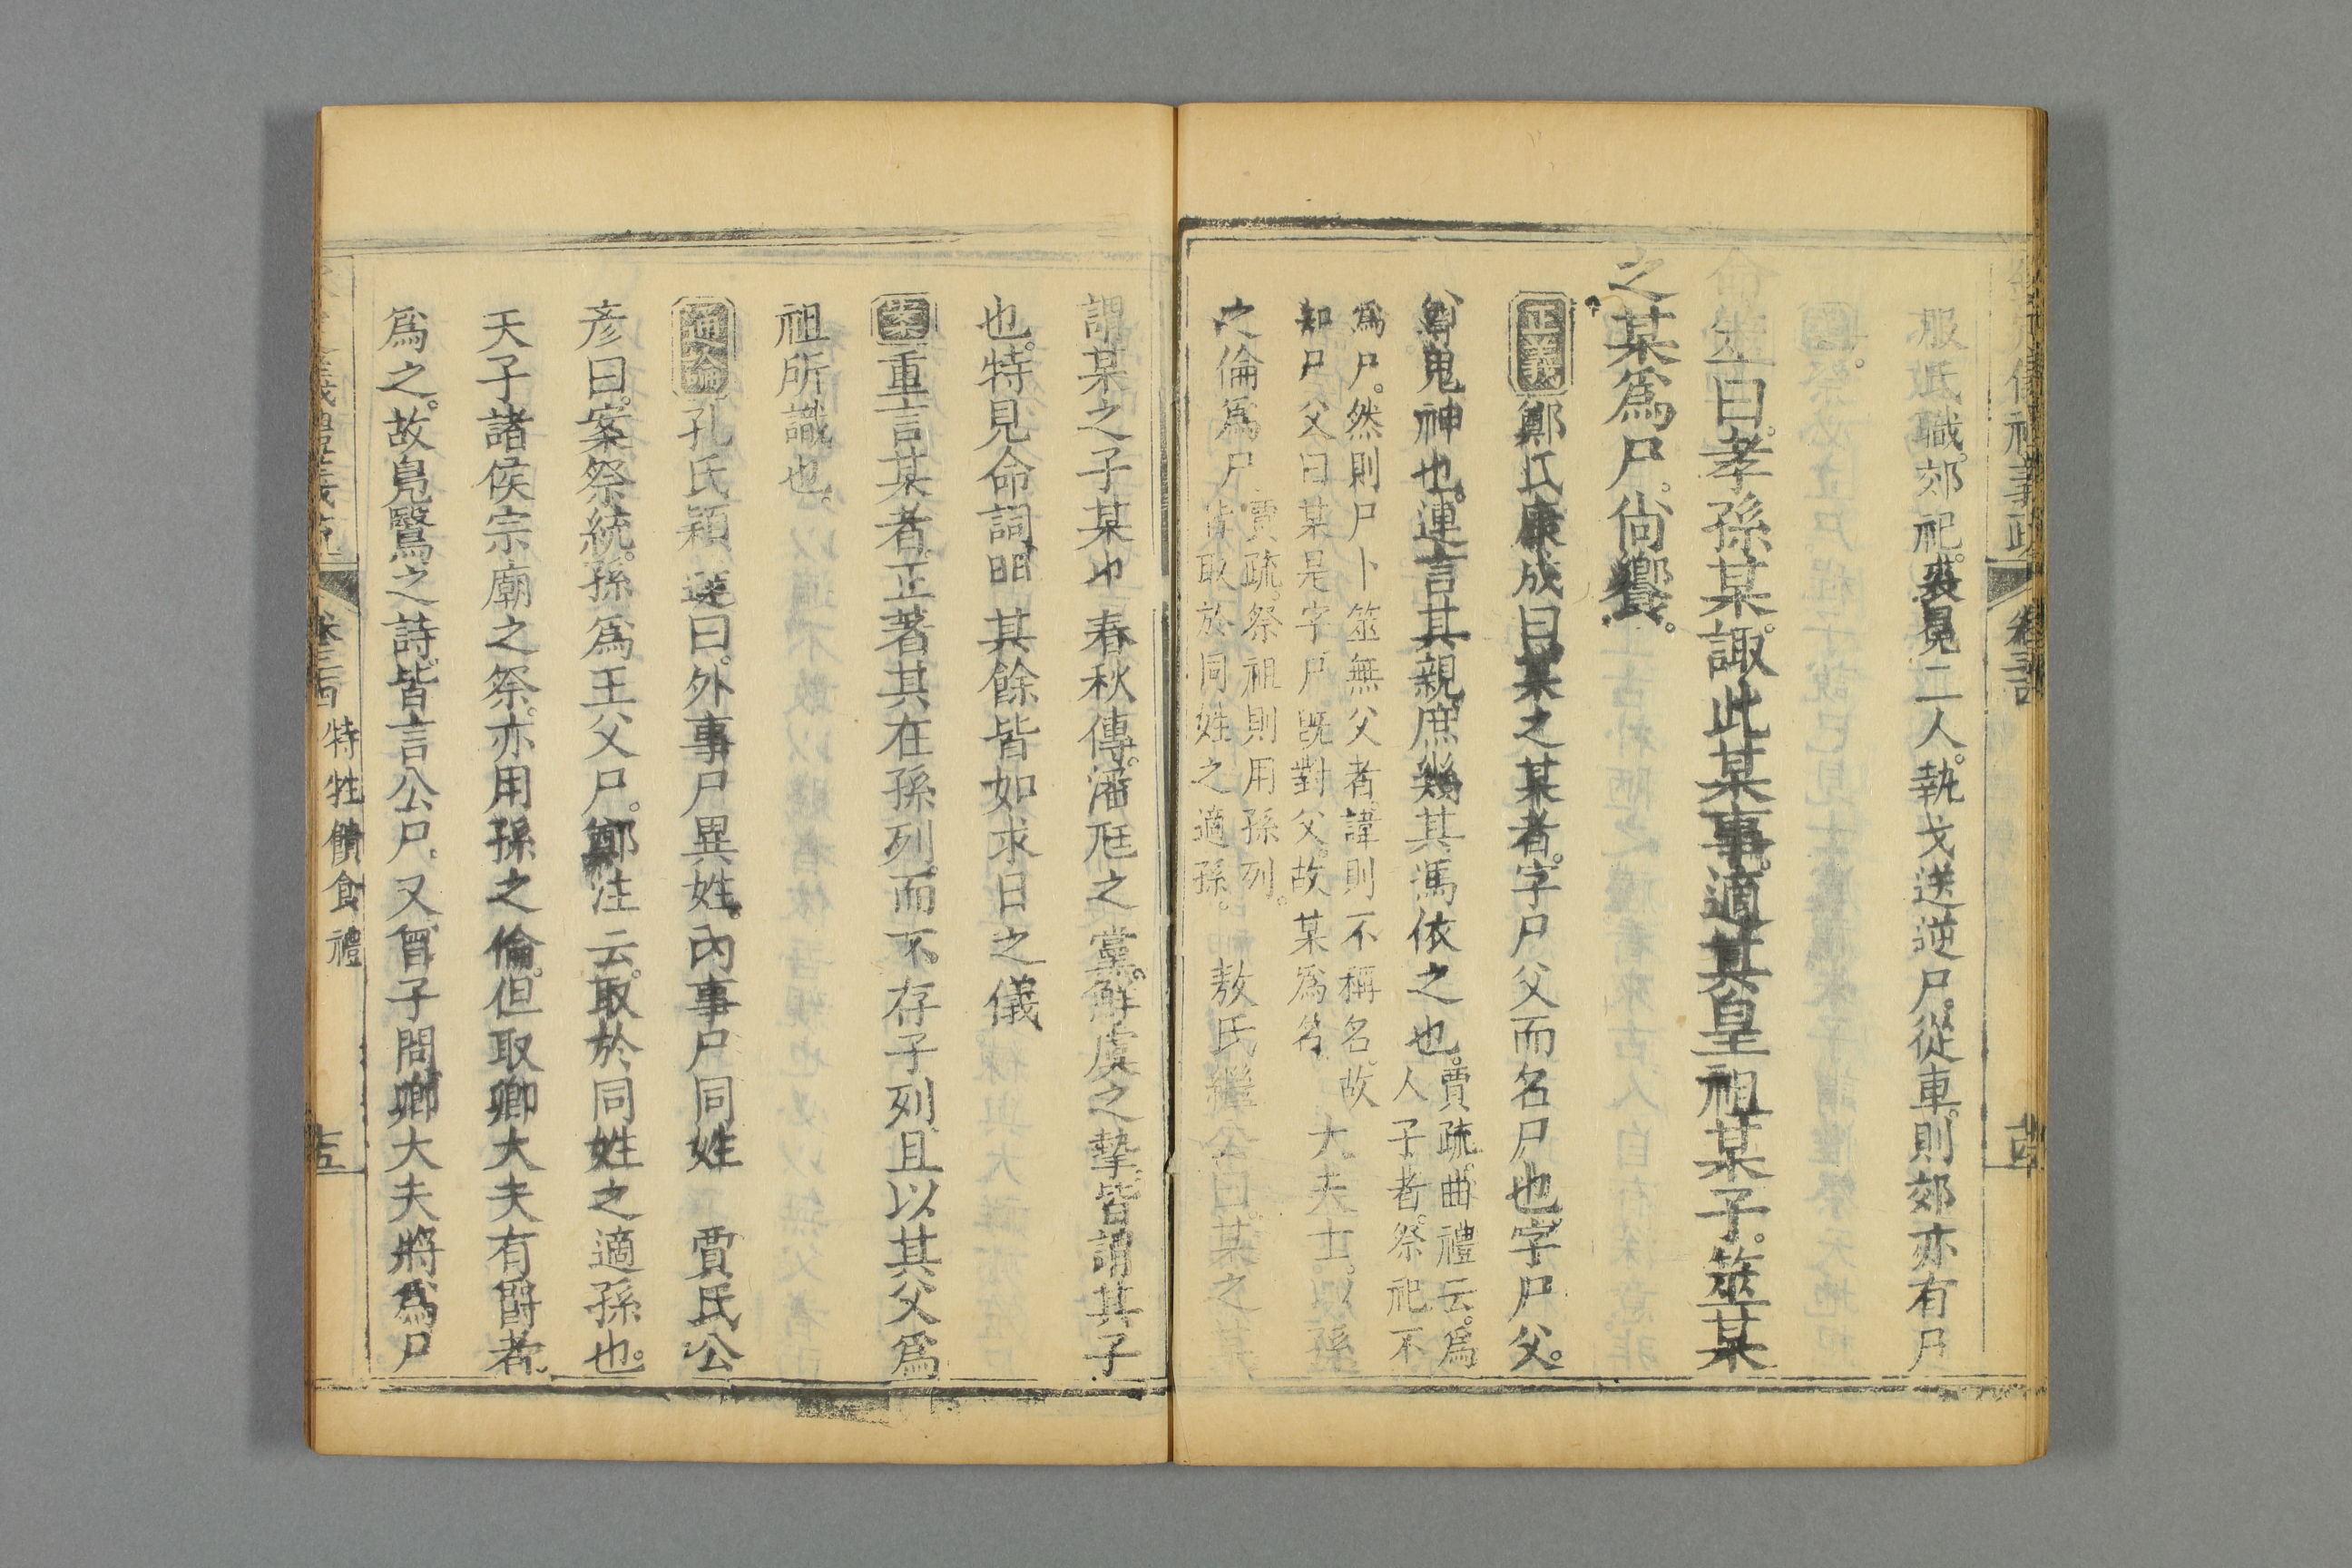 服貳職。郊祀。裘冕二人。執戈送逆尸。從車。則郊亦有尸
也。
曰。孝孫某。諏此某事。適其皇祖某子。筮某
之某爲尸。尙饗。
正義 鄭氏康成曰。某之某者。字尸父而名尸也。字尸父。
尊鬼神也。連言其親。庶幾其馮依之也。賈疏。曲禮云。爲
人子者。祭祀不
爲尸。然則尸卜筮無父者。諱則不稱名。故
知尸父曰某是字。尸旣對父。故某爲名。 大夫士。以孫
之倫爲尸 賈疏。祭祖則用孫列。
皆取於同姓之適孫。 敖氏繼公曰。某之某
謂某之子某也。春秋傳。潘尫之黨。鮮虞之摯。皆謂其子
也。特見命詞。明其餘皆如求日之儀
案 重言某者。正著其在孫列。而不存子列。且以其父爲
祖所識也。
通論 孔氏穎達曰。外事尸異姓。內事尸同姓 賈氏公
彥曰。案祭統。孫爲王父尸。鄭注云。取於同姓之適孫也。
天子諸侯宗廟之祭。亦用孫之倫。但取卿大夫有爵者
爲之。故鳧鷖之詩。皆言公尸。又曾子問。卿大夫將爲尸
卷三十四 特牲饋食禮